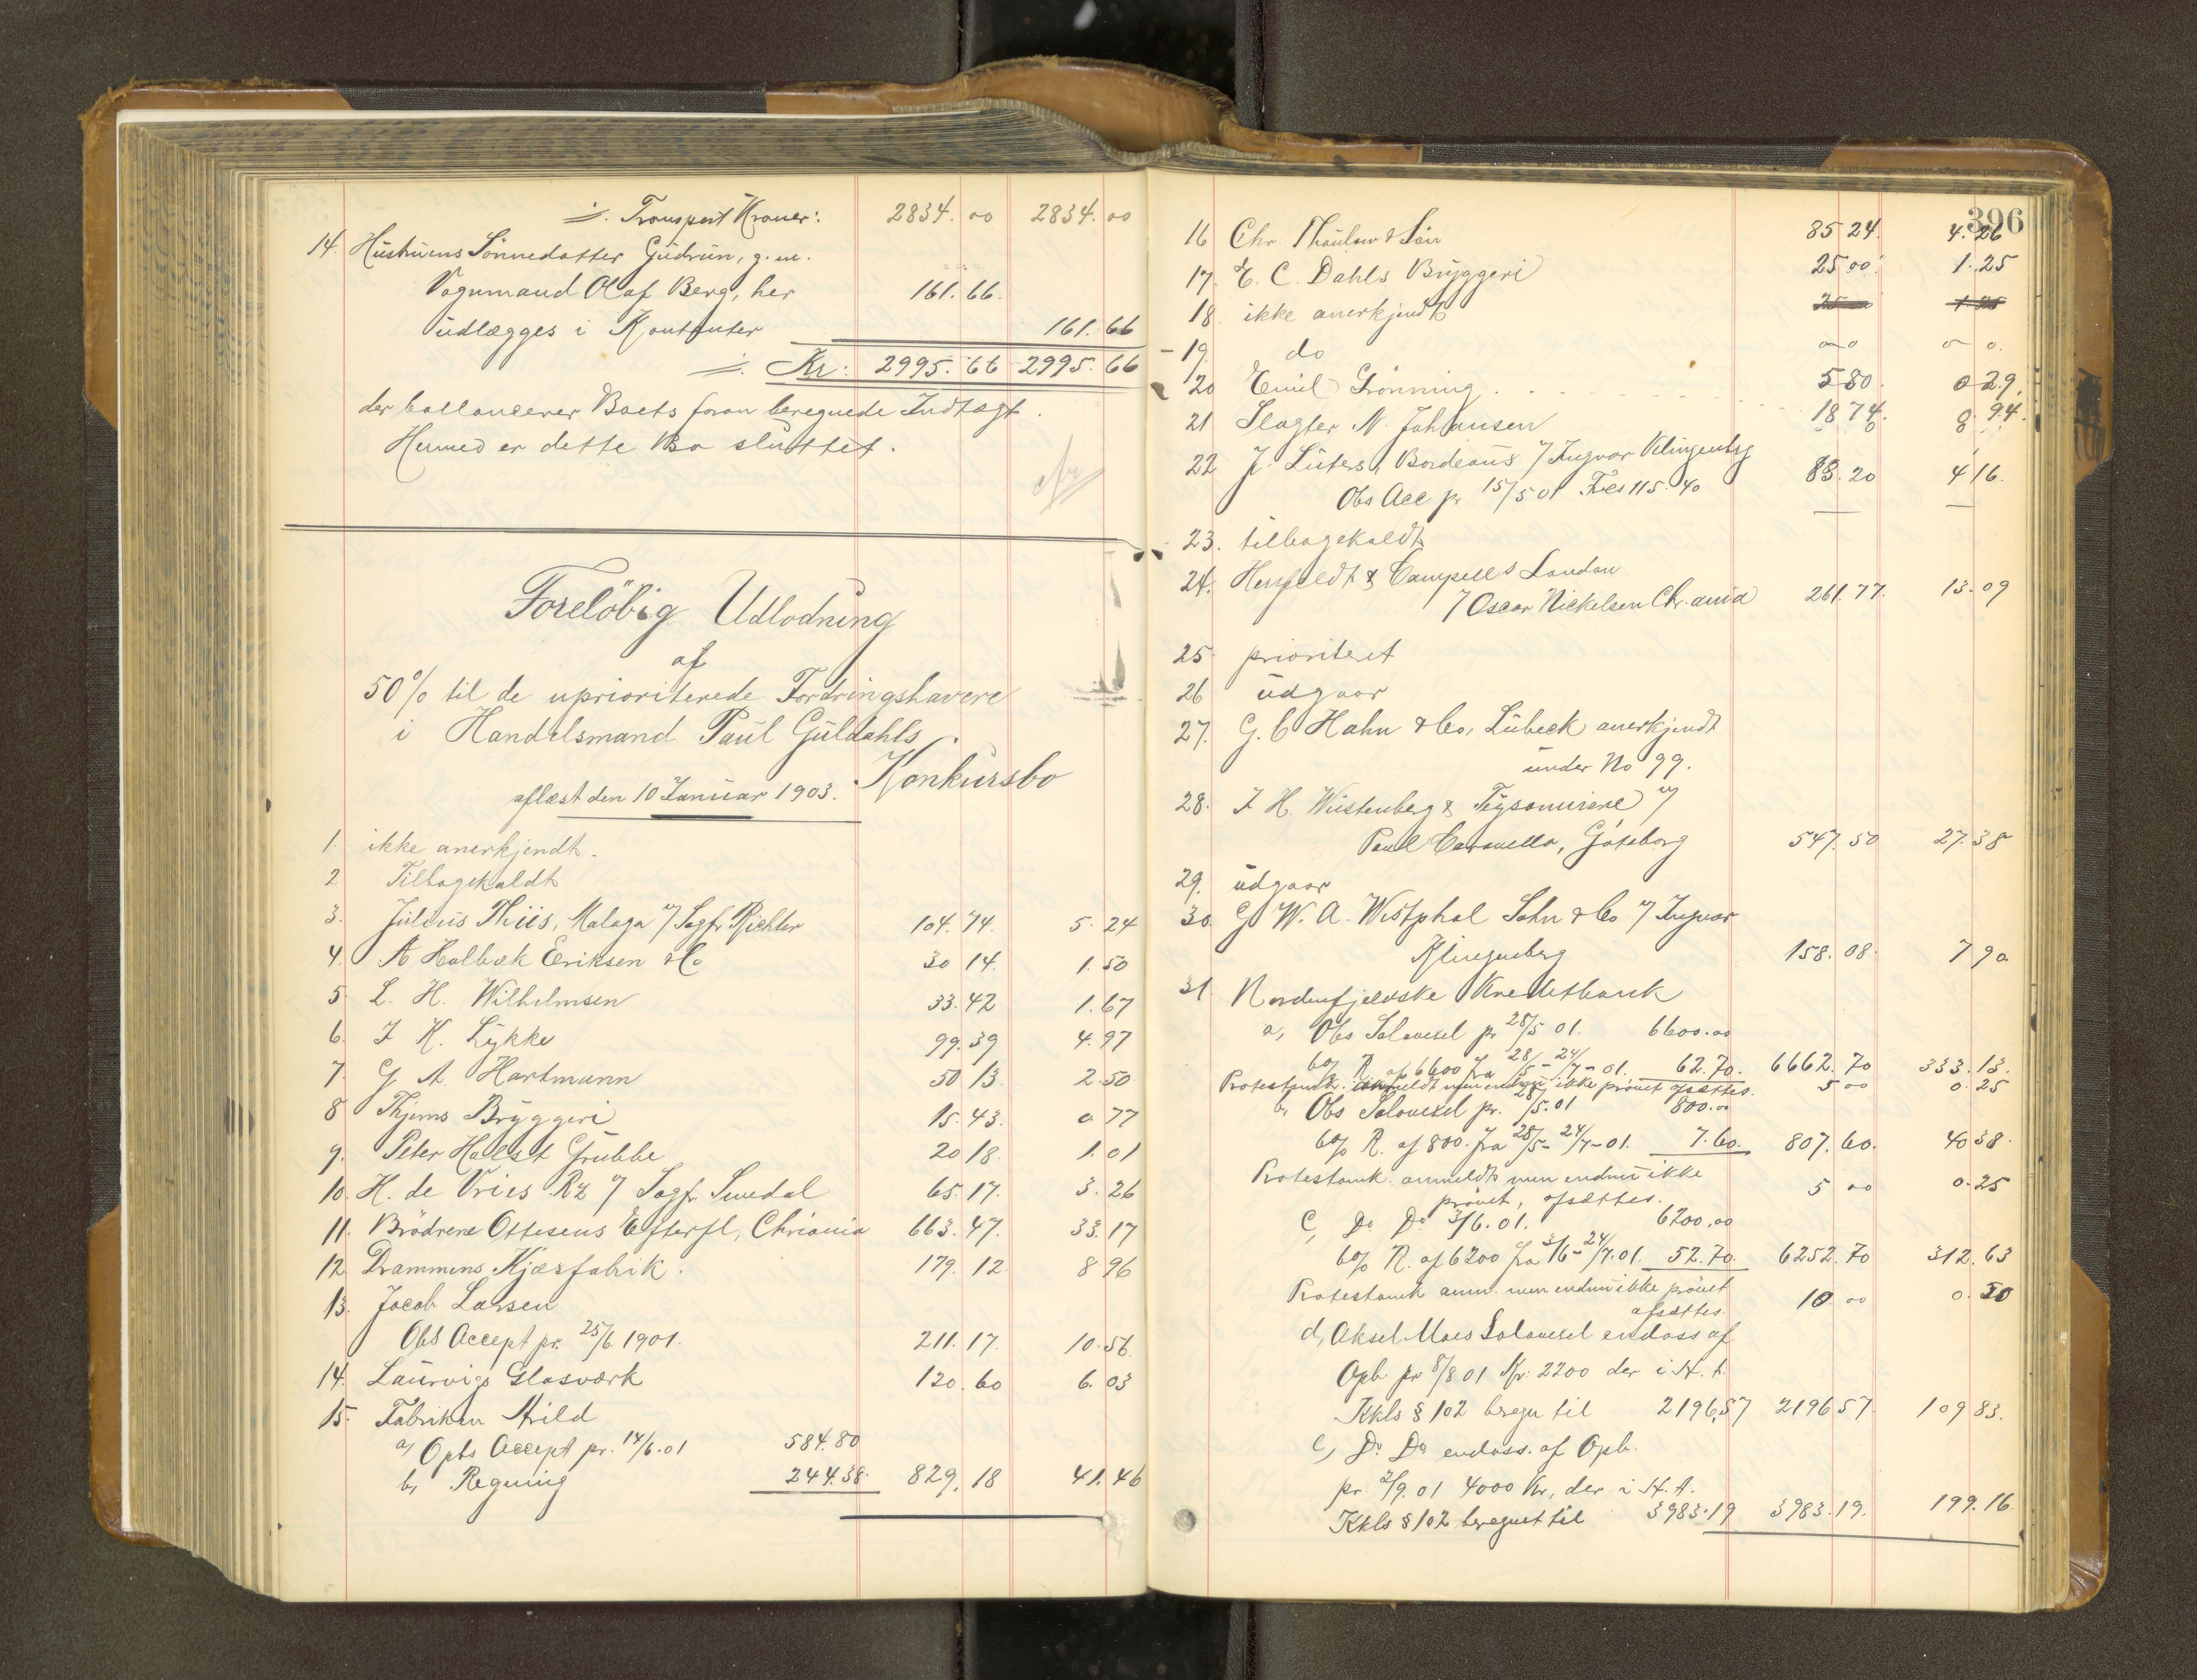 ÷ Transport Kroner: 2834.00 2834.00
14. Hustruens Sønnedatter Gudrun, g.m.
Vognmand Olaf Berg, her 161.66.
udlægges i Kontanter 161.66
÷ Kr: 2995.66 2995.66
der ballancerer Boets foran beregnede Indtægt.
Hermed er dette Bo sluttet.
Foreløbig Udlodning
af
50% til de uprioriterede Fordringshavere
i Handelsmand Paul Guldahls
Konkursbo
aflæst den 10 Januar 1903.
1. ikke anerkjendt.
2 Tilbagekaldt
3. Julius Thiis, Malaga v/ Sagf. Richter 104.74. 5.24
4. A Holbæk Eriksen & Co 30 14. 1.50
5 L. H. Wilhelmsen 33.42 1.67
6. I K. Lykke 99.39 4.97
7. G A. Hartmann 50 13. 2.50
8 Thjems Bryggeri 15.43. 0.77
9. Peter Holst Grubbe 20 18. 1.01
10. H. de Vries Rz v/ Sagf. Smedal 65.17. 3.26
11. Brødrene Ottesens Efterfl, Chriania 663.47. 33.17
12 Drammens Kjæxfabrik. 179.12 8.96
13. Jacob Larsen
Obs Accept pr. 25/6 1901. 211.17. 10.56.
14. Laurvigs Glasværk 120.60 6.03
15. Fabriken Arild
a, Opbs Accept pr. 14/6.01 584.80
b, Regning 244.38. 829.18 41.46
396
16 Chr Thaulow & Søn 85 24. 4.26
17. E. C. Dahls Bryggeri 25 00. 1.25
18. ikke anerkjendt 25 1.25
19. do
20 Emil Grønning 5 80. 0 29.
21 Slagter N. Johansen 18 74. 0.94.
22 J. Luters, Bordeaux v/ Ingvar Klingenbg
Obs Acc pr 15/5 01 Fcs 115.40 83.20 4 16.
23. tilbagekaldt
24. Herzfeldt & Campell London
v/ Oscar Nickelsen Chr.ania 261.77. 13.09
25 prioriteret
26 udgaar
27. G. C Hahn & Co, Lübeck anerkjendt
under No 99.
28. I H. Wüstenberg & v/
Paul Caravello, Gøteborg 547.50 27.38
29. udgaar
30. G W. A. Westphal Sohn & Co v/ Ingvar
Klingenberg 158.08. 7 90
31. Nordenfjeldske Kreditbank
a, Obs Solavexel pr 28/5 01. 6600.00
6% R. af 6600 fra 28/5 - 24/7 - 01. 62.70. 6662.70 333.13.
Protestomk. anmeldt men endnu ikke prøvet afsættes. 5 00 0.25
b, Obs Solavexel pr. 28/5.01 800.00
6% R. af 800. fra 28/5 - 24/7 - 01. 7.60. 807.60. 40 38.
Protestomk. anmeldt men endnu ikke
prøvet, afsættes. 5 00 0.25
c, Do Do 3/6.01. 6200.00
6% R. af 6200 fra 3/6 - 24/7.01. 52.70. 6252.70 312.63
Protestomk anm. men endnu ikke prøvet
afsættes. 10 00 0.50
d, Aksel Moes Solavexel endoss af
Opb pr 8/8 01 Kr: 2200 der i H. t.
Kkls § 102 beregn til 2196,57 2196 57 109 83.
e, Do Do endoss. af Opb.
pr. 2/9.01 4000 Kr, der i H. t.
Kkls § 102 beregnet til 3983.19 3983.19. 199.16